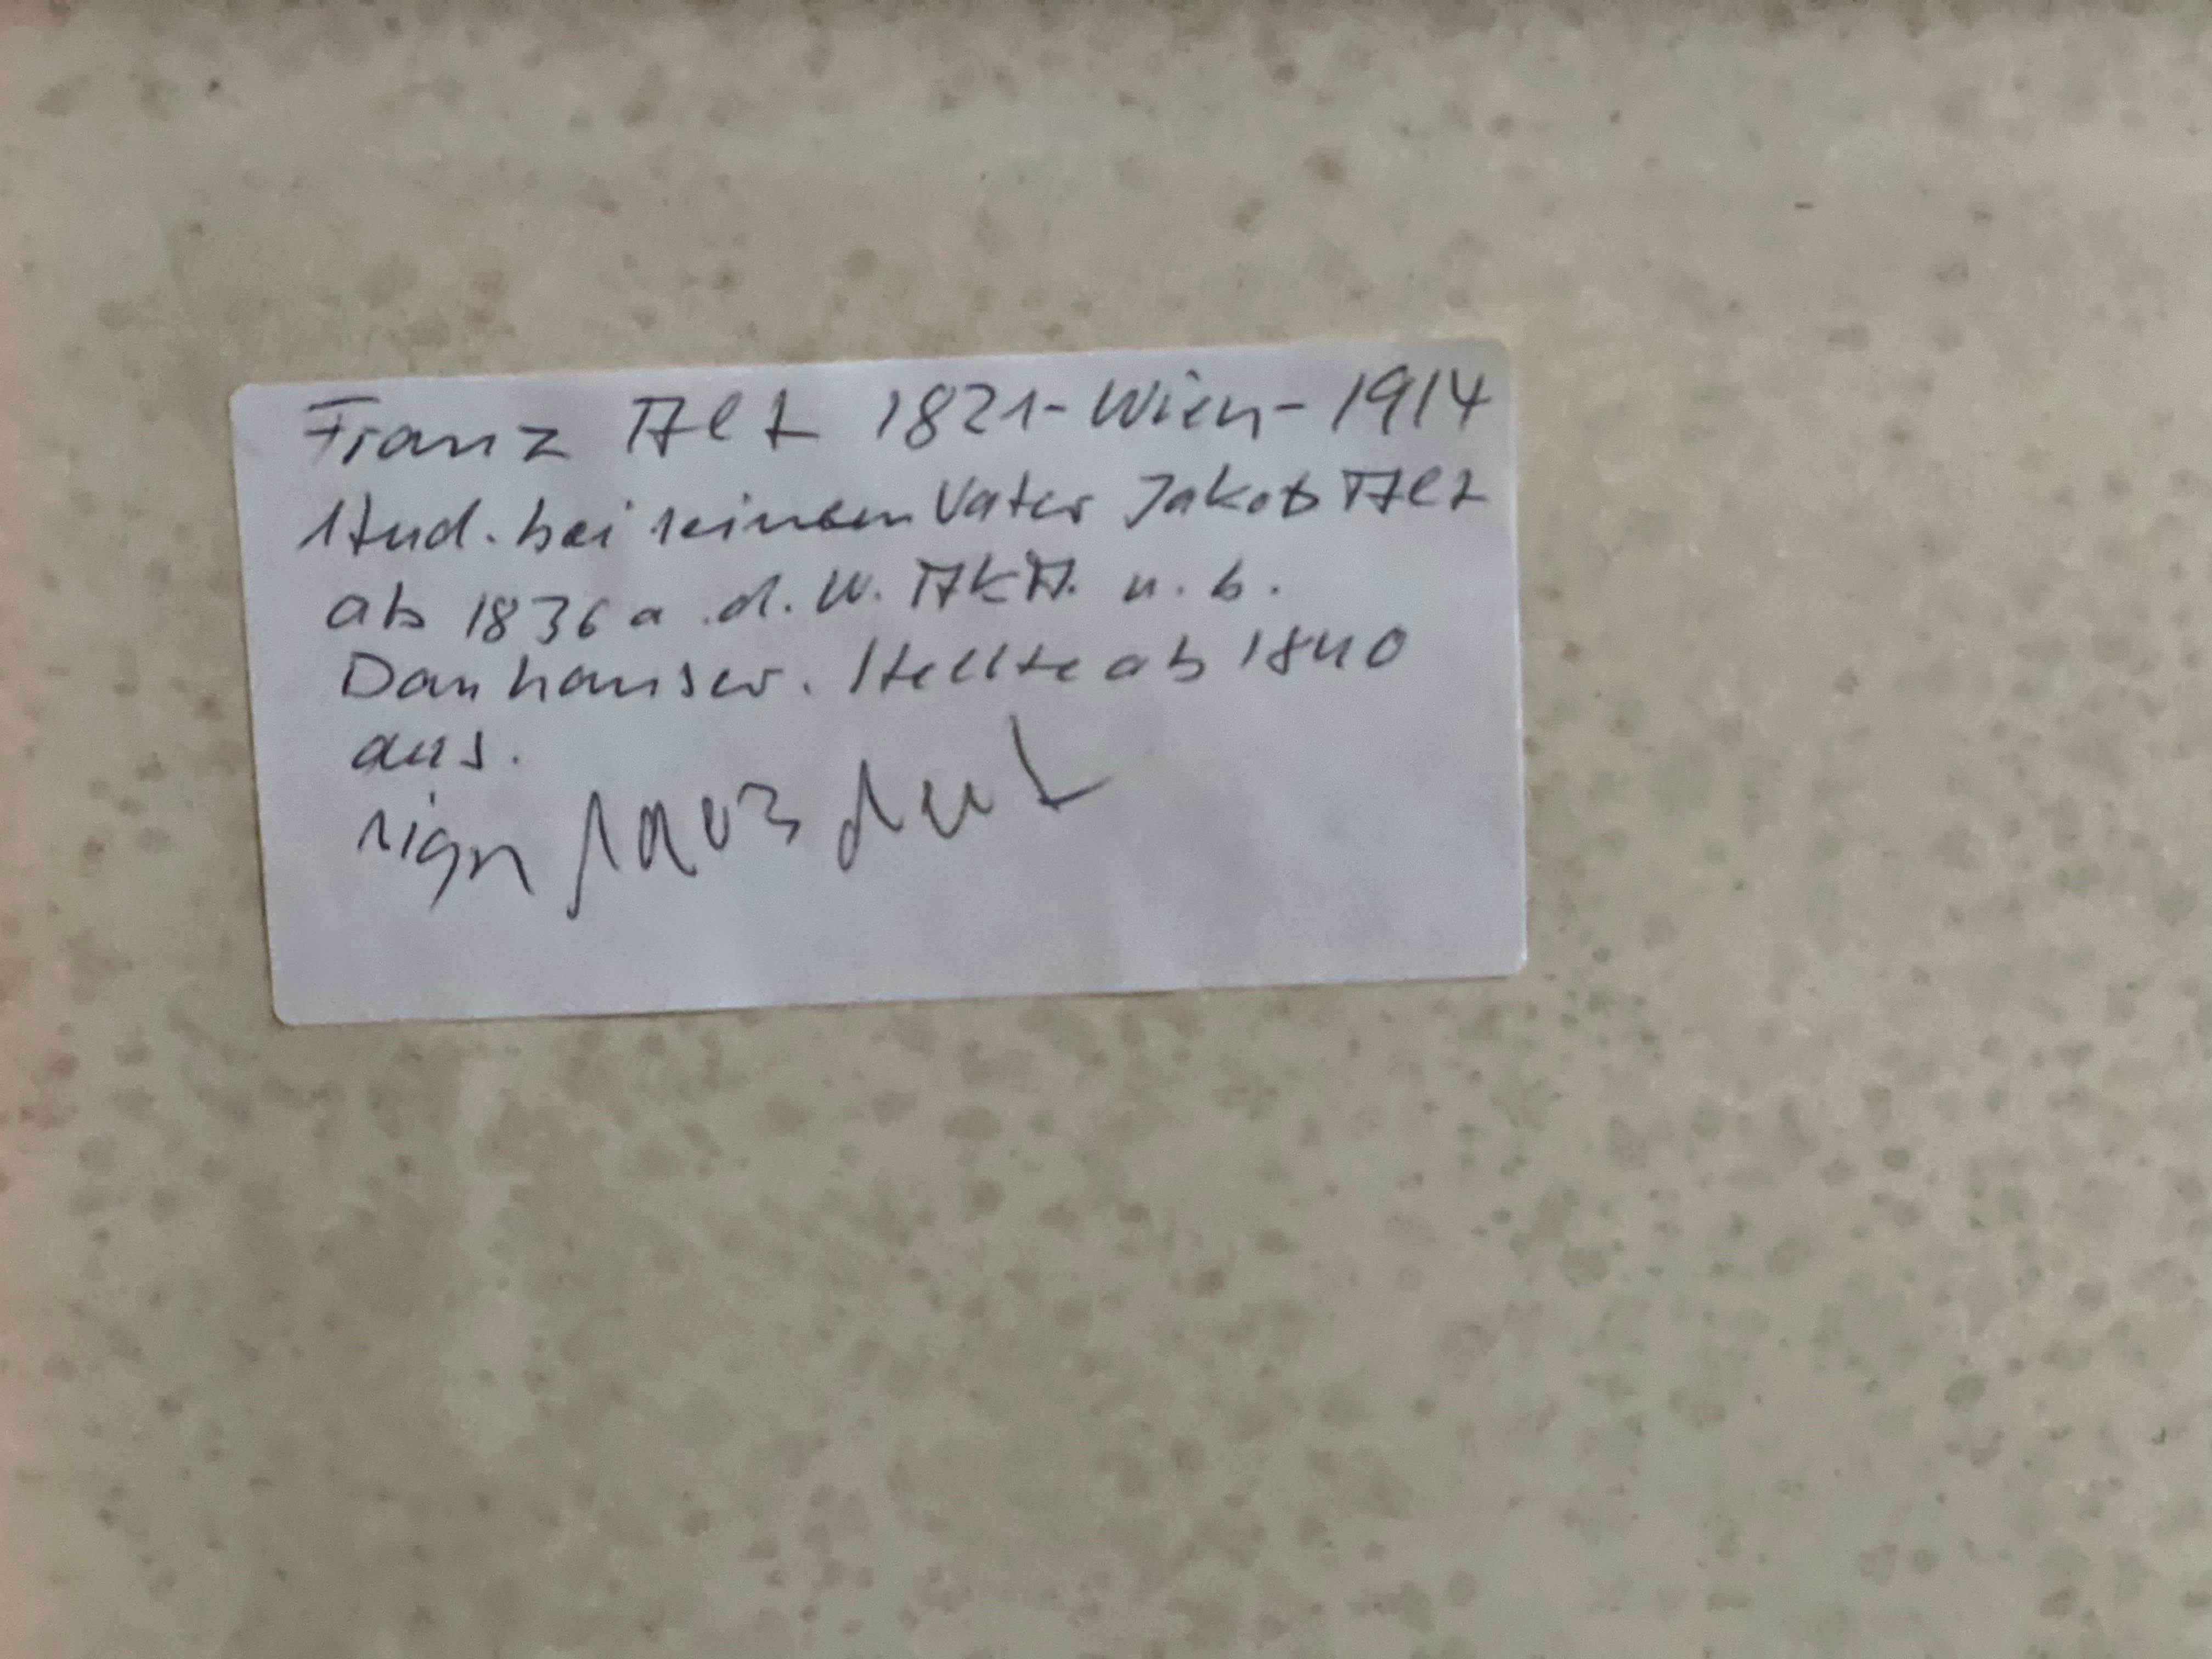 Franz Alt 1821-Wien-1914
stud. bei seinen Vater Jakob Alt
ab 1836 a.d.W. AkA. u. b.
Danhauser. Stellte ab 1840
aus.
sign